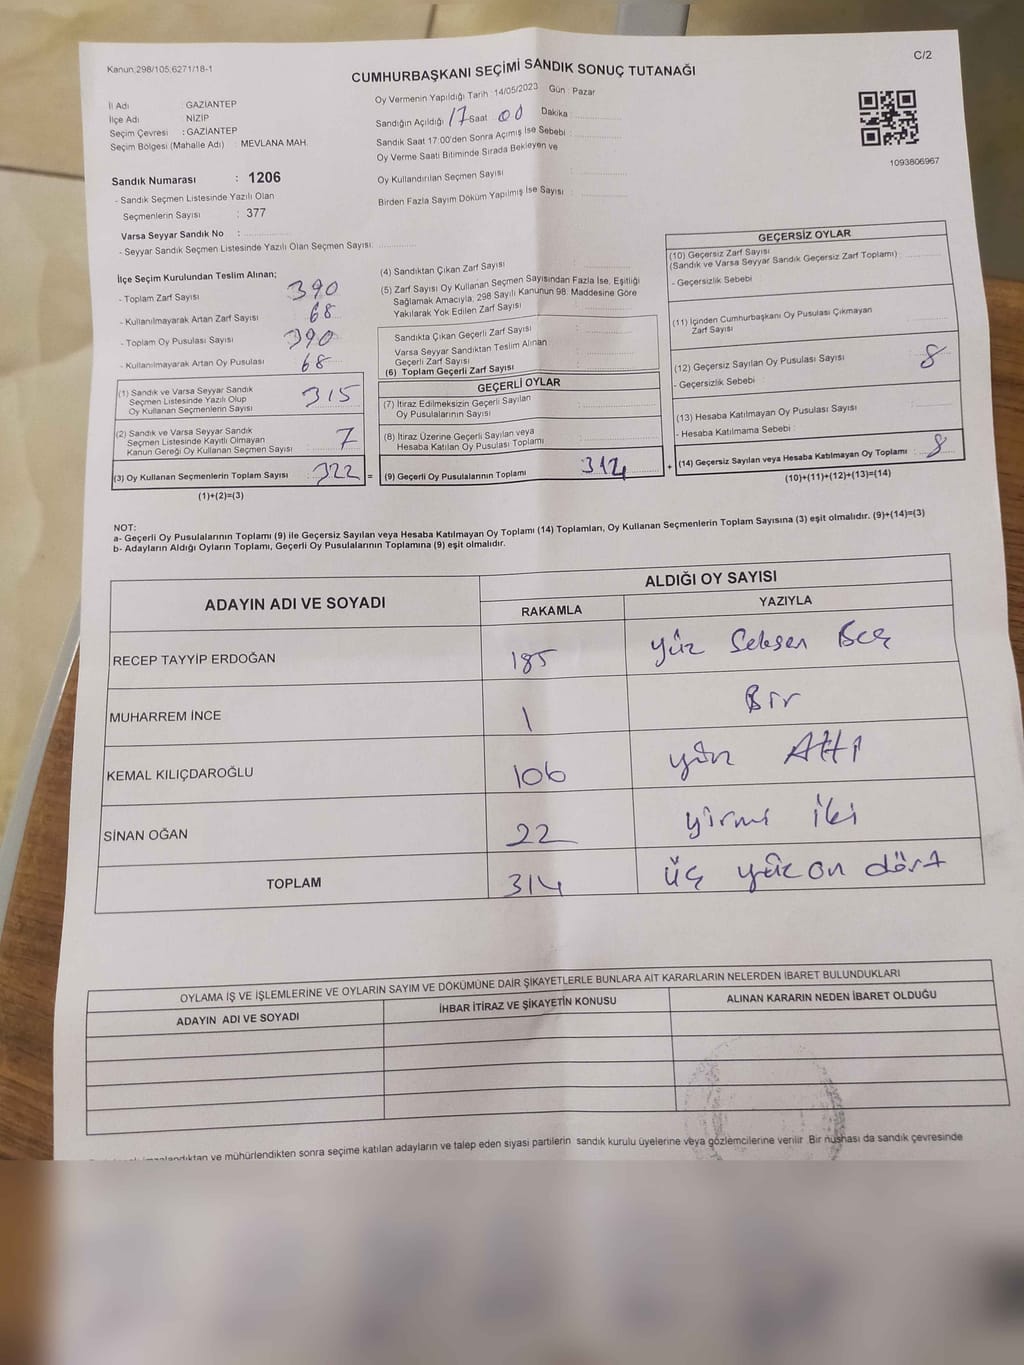 Kanun:298/105;6271/18-1
C/2
CUMHURBAŞKANI SEÇİMİ SANDIK SONUÇ TUTANAĞI
İl Adı : GAZİANTEP
İlçe Adı : NİZİP
Seçim Çevresi : GAZİANTEP
Seçim Bölgesi (Mahalle Adı) : MEVLANA MAH.
Oy Vermenin Yapıldığı Tarih : 14/05/2023 Gün : Pazar
Sandığın Açıldığı 17 Saat 00 Dakika
Sandık Saat 17:00'den Sonra Açımış İse Sebebi :
Oy Verme Saati Bitiminde Sırada Bekleyen ve
Oy Kullandırılan Seçmen Sayısı :
Birden Fazla Sayım Döküm Yapılmış İse Sayısı :
1093806967
Sandık Numarası : 1206
- Sandık Seçmen Listesinde Yazılı Olan
Seçmenlerin Sayısı : 377
Varsa Seyyar Sandık No :
- Seyyar Sandık Seçmen Listesinde Yazılı Olan Seçmen Sayısı:
İlçe Seçim Kurulundan Teslim Alınan;
- Toplam Zarf Sayısı 390
- Kullanılmayarak Artan Zarf Sayısı 68
- Toplam Oy Pusulası Sayısı 390
- Kullanılmayarak Artan Oy Pusulası 68
(1) Sandık ve Varsa Seyyar Sandık
Seçmen Listesinde Yazılı Olup
Oy Kullanan Seçmenlerin Sayısı : 315
(2) Sandık ve Varsa Seyyar Sandık
Seçmen Listesinde Kayıtlı Olmayan
Kanun Gereği Oy Kullanan Seçmen Sayısı : 7
(3) Oy Kullanan Seçmenlerin Toplam Sayısı : 322 =
(1)+(2)=(3)
(4) Sandıktan Çıkan Zarf Sayısı :
(5) Zarf Sayısı Oy Kullanan Seçmen Sayısından Fazla İse, Eşitliği
Sağlamak Amacıyla, 298 Sayılı Kanunun 98. Maddesine Göre
Yakılarak Yok Edilen Zarf Sayısı :
Sandıkta Çıkan Geçerli Zarf Sayısı :
Varsa Seyyar Sandıktan Teslim Alınan
Geçerli Zarf Sayısı :
(6) Toplam Geçerli Zarf Sayısı :
GEÇERLİ OYLAR
(7) İtiraz Edilmeksizin Geçerli Sayılan
Oy Pusulalarının Sayısı :
(8) İtiraz Üzerine Geçerli Sayılan veya
Hesaba Katılan Oy Pusulası Toplamı :
(9) Geçerli Oy Pusulalarının Toplamı 314 +
GEÇERSİZ OYLAR
(10) Geçersiz Zarf Sayısı
(Sandık ve Varsa Seyyar Sandık Geçersiz Zarf Toplamı) :
- Geçersizlik Sebebi :
(11) İçinden Cumhurbaşkanı Oy Pusulası Çıkmayan
Zarf Sayısı :
(12) Geçersiz Sayılan Oy Pusulası Sayısı : 8
- Geçersizlik Sebebi :
(13) Hesaba Katılmayan Oy Pusulası Sayısı :
- Hesaba Katılmama Sebebi :
(14) Geçersiz Sayılan veya Hesaba Katılmayan Oy Toplamı : 8
(10)+(11)+(12)+(13)=(14)
NOT:
a- Geçerli Oy Pusulalarının Toplamı (9) ile Geçersiz Sayılan veya Hesaba Katılmayan Oy Toplamı (14) Toplamları, Oy Kullanan Seçmenlerin Toplam Sayısına (3) eşit olmalıdır. (9)+(14)=(3)
b- Adayların Aldığı Oyların Toplamı, Geçerli Oy Pusulalarının Toplamına (9) eşit olmalıdır.
ADAYIN ADI VE SOYADI ALDIĞI OY SAYISI
RAKAMLA YAZIYLA
RECEP TAYYİP ERDOĞAN 185 yüz Seksen Beş
MUHARREM İNCE 1 Bir
KEMAL KILIÇDAROĞLU 106 yüz Altı
SİNAN OĞAN 22 yirmi iki
TOPLAM 314 üç yüz on dört
OYLAMA İŞ VE İŞLEMLERİNE VE OYLARIN SAYIM VE DÖKÜMÜNE DAİR ŞİKAYETLERLE BUNLARA AİT KARARLARIN NELERDEN İBARET BULUNDUKLARI
ADAYIN ADI VE SOYADI İHBAR İTİRAZ VE ŞİKAYETİN KONUSU ALINAN KARARIN NEDEN İBARET OLDUĞU
ve mühürlendikten sonra seçime katılan adayların ve talep eden siyasi partilerin sandık kurulu üyelerine veya gözlemcilerine verilir. Bir nüshası da sandık çevresinde